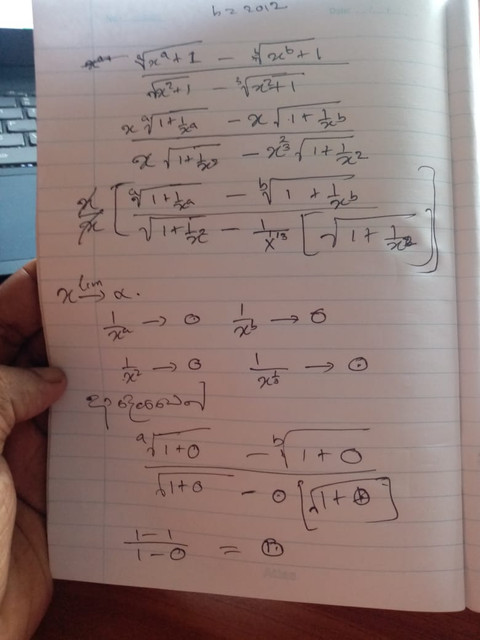 b = 2012
ᵃ√(xᵃ+1) − ᵇ√(xᵇ+1) / √(x²+1) − ³√(x²+1)
x ᵃ√(1+1/xᵃ) − x √(1+1/xᵇ) / x √(1+1/x²) − x^(2/3) √(1+1/x²)
x/x [ ᵃ√(1+1/xᵃ) − ᵇ√(1+1/xᵇ) / √(1+1/x²) − 1/x^(1/3) [ √(1+1/x²) ] ]
lim x → α.
1/xᵃ → 0 1/xᵇ → 0
1/x² → 0 1/x^(1/3) → 0
ᵃ√(1+0) − ᵇ√(1+0) / √(1+0) − 0 [√(1+0)]
1−1 / 1−0 = 0
Atlas